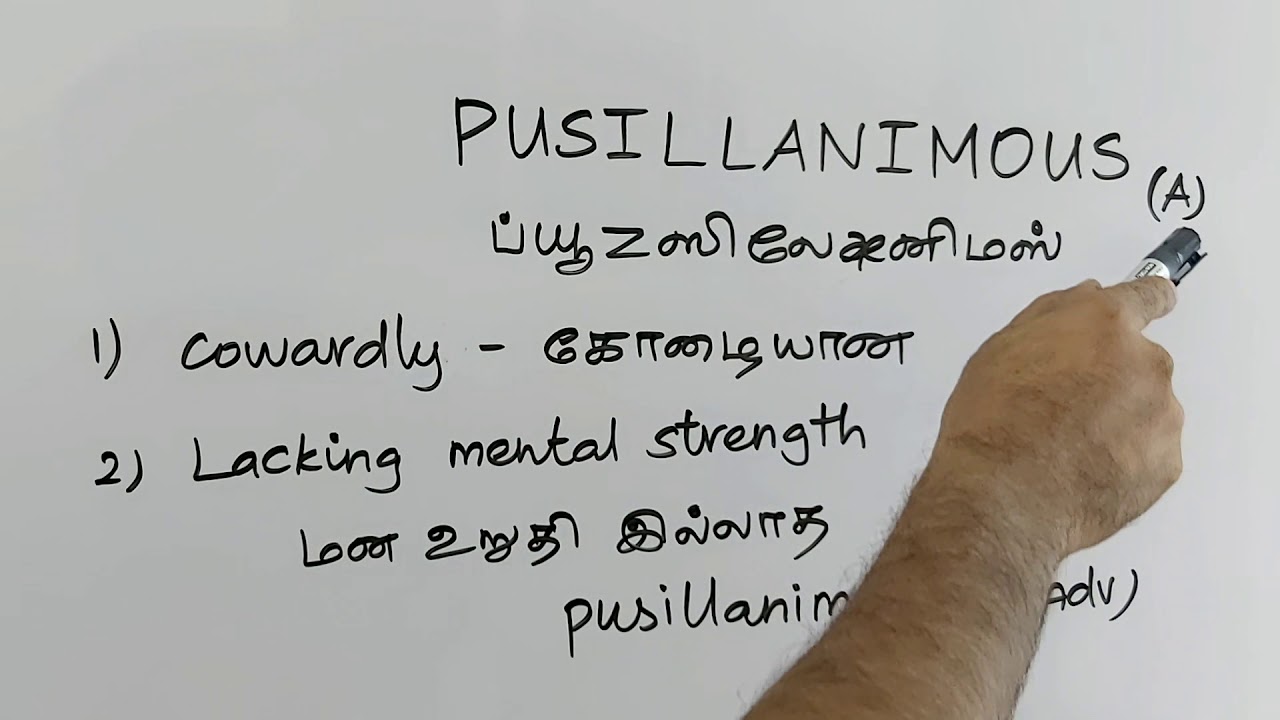 PUSILLANIMOUS (A)
ப்யூZஸிலேஷனிமஸ்
1) cowardly - கோழையான
2) Lacking mental strength
மன உறுதி இல்லாத
pusillanim Adv)